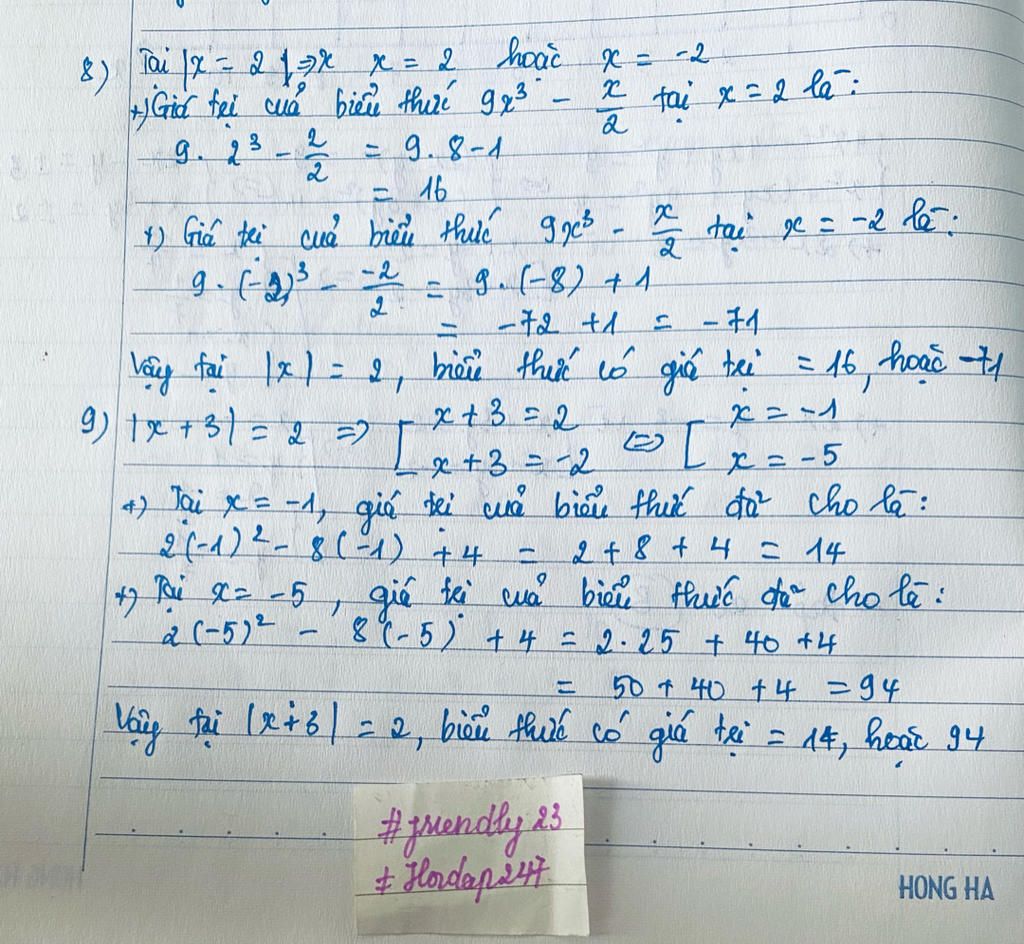 8) Tại |x = 2 |⇒x x = 2 hoặc x = -2
+) Giá trị cuả biểu thức 9x³ - x/2 tại x = 2 là:
9. 2³ - 2/2 = 9.8-1
= 16
+) Giá trị cuả biểu thức 9x³ - x/2 tại x = -2 là:
9.(-2)³ - -2/2 = 9.(-8) + 1
= -72 +1 = -71
Vậy tại |x| = 2, biểu thức có giá trị = 16, hoặc -71
9) |x + 3| = 2 ⇒ [ x + 3 = 2 ⇔ [ x = -1
x + 3 = -2 x = -5
+) Tại x = -1, giá trị cuả biểu thức đã cho là:
2(-1)² - 8(-1) + 4 = 2 + 8 + 4 = 14
+) Tại x = -5, giá trị cuả biểu thức đã cho là:
2(-5)² - 8(-5) + 4 = 2.25 + 40 +4
= 50 + 40 + 4 = 94
Vậy tại |x+3| = 2, biểu thức có giá trị = 14, hoặc 94
#friendly23
# Hoidap247
HONG HA